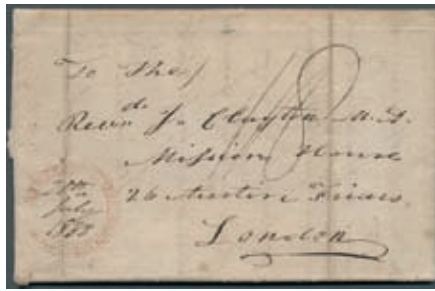 To The
Revd. J. Clayton M.A.
Mission House
26 Austin Friars
London
July